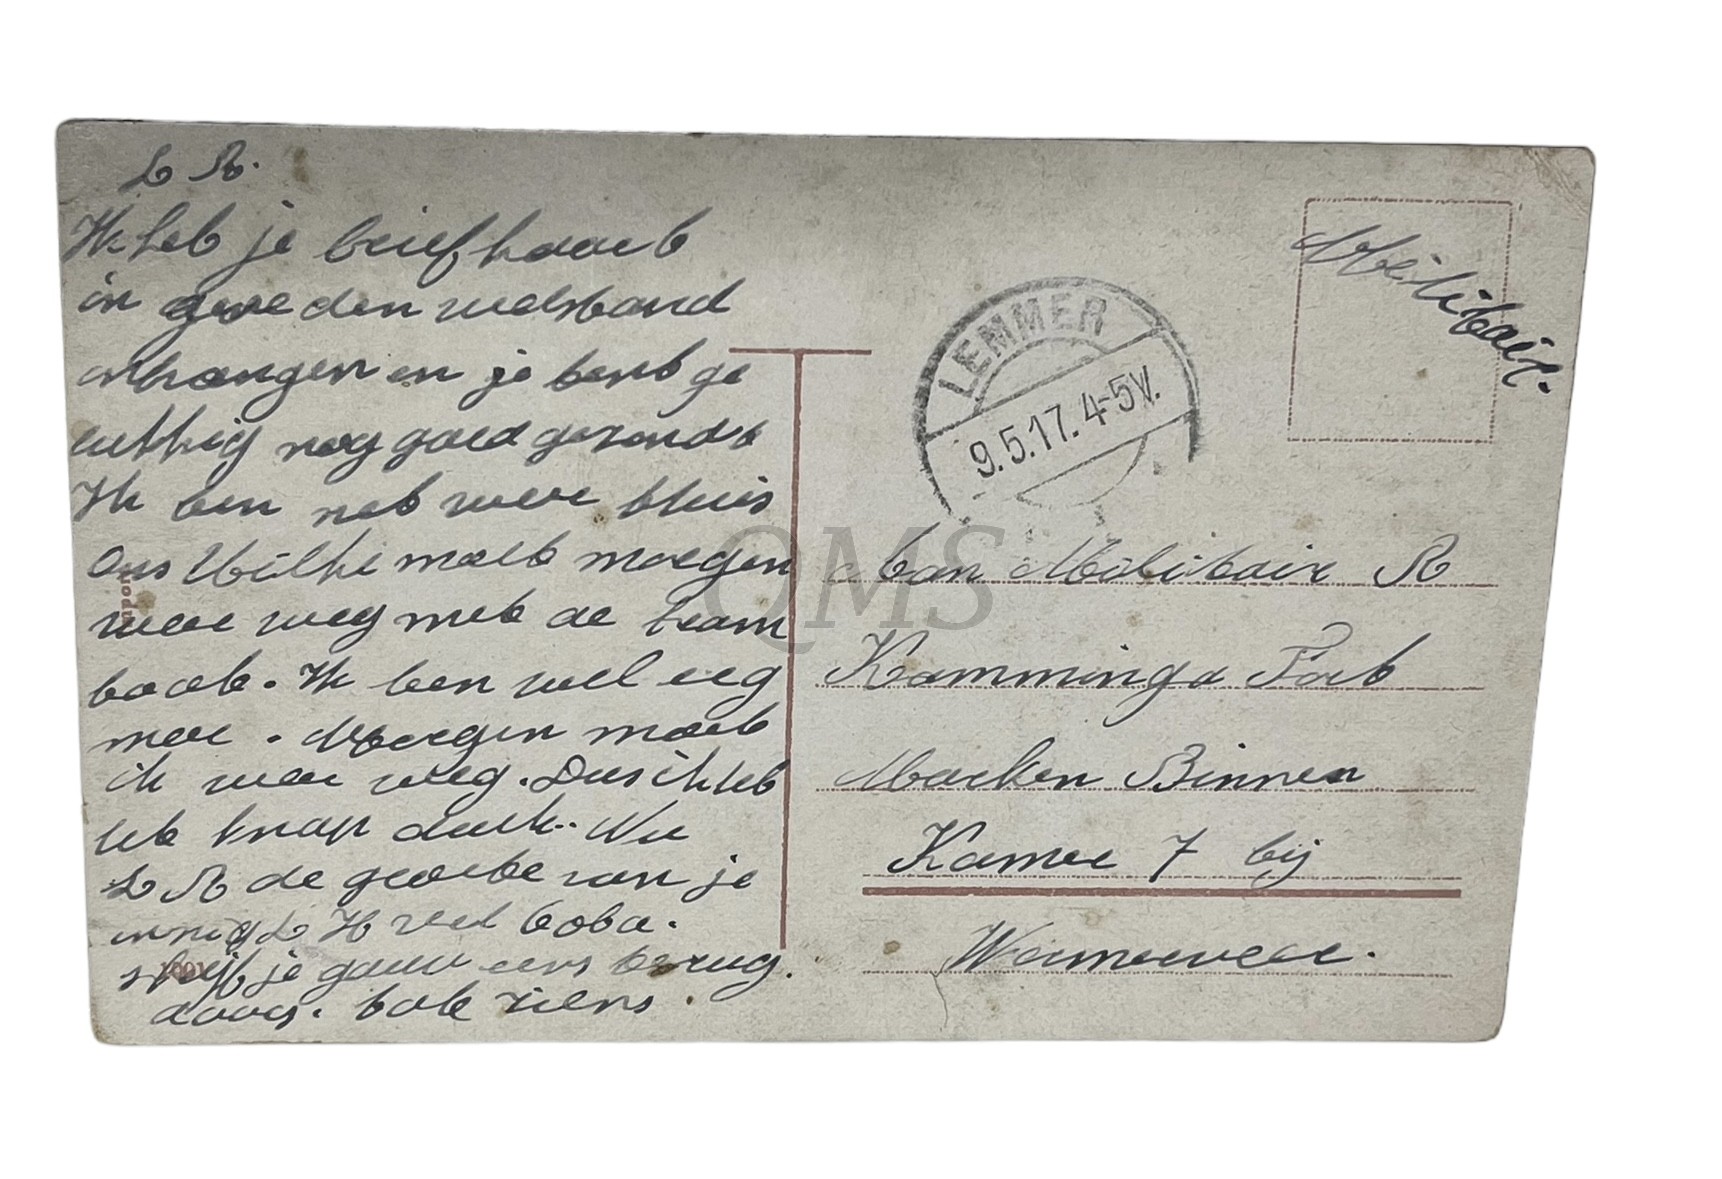 L R.
Ik heb je brief kaart
in goe den welstand
onhvangen en je bent ge
lukkig nog goed gezondt
Ik ben net weer thuis
Ons Wilhe moet morgen
weer weg met de tram
boot. Ik ben wel erg
moe. Morgen moet
ik weer weg. Dus ik heb
het knap druk. Nu
L R de groete van je
innig L H veel
schrijf je gauw eens terug.
daag. tot ziens.
Militair.
LEMMER
9.5.17. 4-5V.
Aan Militair R
Kamminga Fort
Marken Binnen
Kamer 7 bij
Wormerveer.
QMS